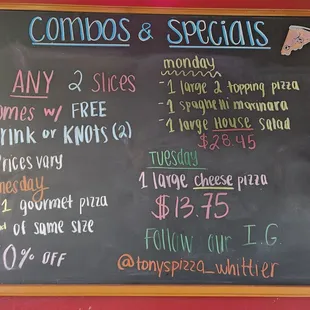 COMBOS & SPECIALS
ANY 2 SLICES
omes w/ FREE
rink or KNOTS (2)
Prices vary
nesday
1 gourmet pizza
of same size
0% OFF
monday
-1 large 2 topping pizza
-1 spaghetti marinara
-1 large HOUSE salad
$28.45
TUESDAY
1 large cheese pizza
$13.75
Follow our I.G.
@tonyspizza_whittier